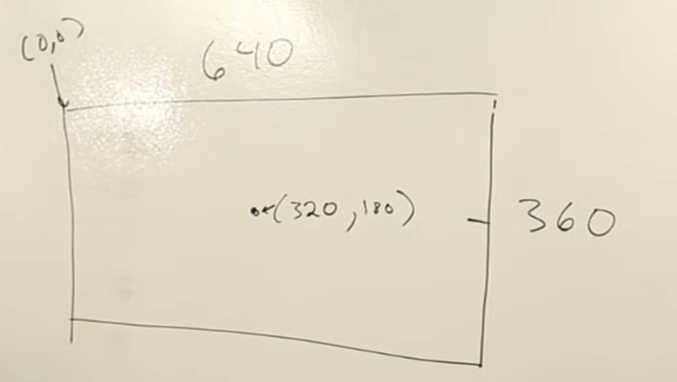 (0,0)
640
(320,180)
360